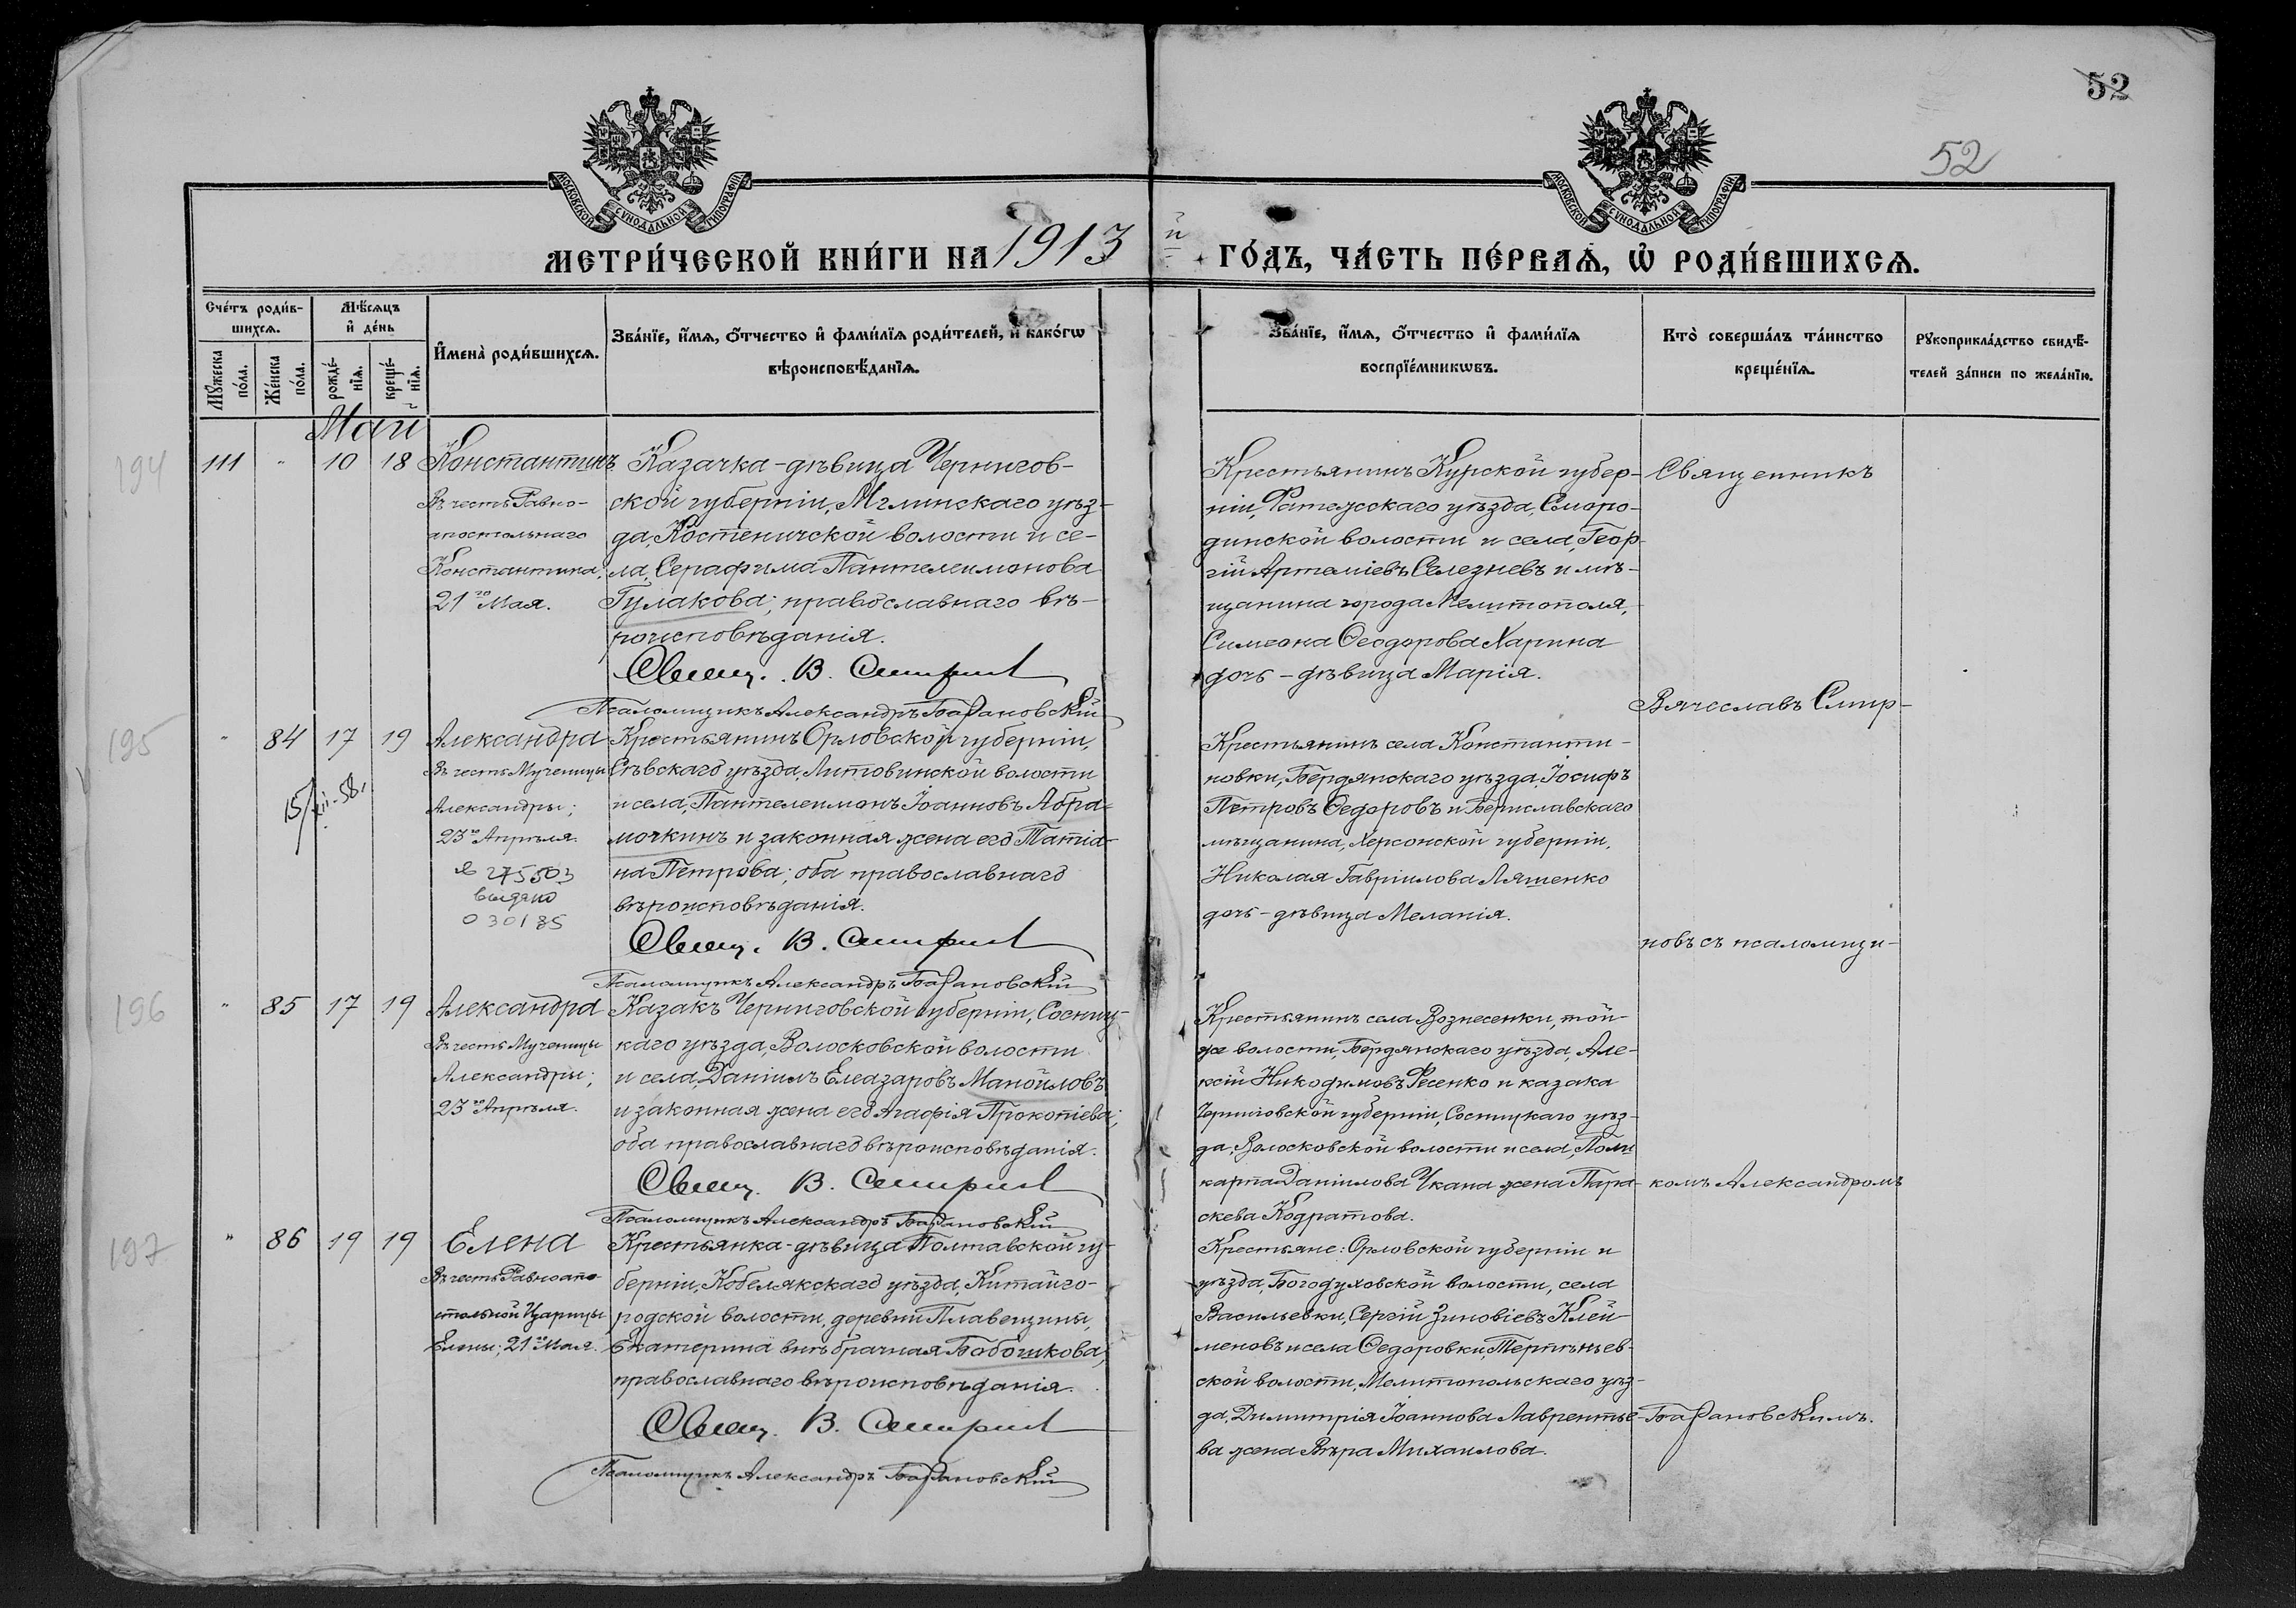 52
52
МОСКОВСКОЙ СѴНОДАЛЬНОЙ ТИПОГРАФІИ
МОСКОВСКОЙ СѴНОДАЛЬНОЙ ТИПОГРАФІИ
МЕТРИ́ЧЕСКОЙ КНИ́ГИ НА 1913 й ГО́ДЪ, ЧА́СТЬ ПЕ́РВАѦ, Ѡ҆ РОДИ́ВШИХСѦ.
Сче́тъ роди́в-
шихсѧ.
Мѣ́сѧцъ
и҆ де́нь
Мꙋжеска по́ла.
Же́нска по́ла.
рожде́-нїѧ.
креще́-нїѧ.
И҆мена̀ роди́вшихсѧ.
Зва́нїе, и҆́мѧ, ѻ҆́тчество и҆ фами́лїѧ роди́телей, и҆ како́гѡ
вѣроисповѣ́данїѧ.
Зва́нїе, и҆́мѧ, ѻ҆́тчество и҆ фами́лїѧ
воспрїе́мникѡвъ.
Кто̀ соверша́лъ та́инство
креще́нїѧ.
Рꙋкоприкла́дство свидѣ́-
телей за́писи по жела́нїю.
Май
194
111 " 10 18 Константинъ
Въ честь Равно-
апостольнаго
Константина;
21го Мая.
Казачка-дѣвица Чернигов-
ской губерніи, Мглинскаго уѣз-
да, Костеничской волости и се-
ла, Серафима Пантелеимонова
Гулакова; православнаго вѣ-
роисповѣданія.
Свящ. В. Смирнов
Псаломщикъ Александръ Барановскій
Крестьянинъ Курской губер-
ніи, Фатежскаго уѣзда, Сморо-
динской волости и села, Геор-
гій Артеміевъ Селезневъ и мѣ-
щанина города Мелитополя,
Симеона Ѳеодорова Харина
дочь - дѣвица Марія.
Священникъ
Вячеславъ Смир-
195
" 84 17 19 Александра
Въ честь Мученицы
Александры;
23го Апрѣля.
15/XII-58.
№ 275503
выдано
030185
Крестьянинъ Орловской губерніи,
Сѣвскаго уѣзда, Литовинской волости
и села, Пантелеимонъ Іоанновъ Абра-
мочкинъ и законная жена его Татіа-
на Петрова; оба православнаго
вѣроисповѣданія.
Свящ. В. Смирнов
Псаломщикъ Александръ Барановскій
Крестьянинъ села Константи-
новки, Бердянскаго уѣзда, Іосифъ
Петровъ Ѳедоровъ и Бериславскаго
мѣщанина, Херсонской губерніи,
Николая Гавріилова Ляшенко
дочь - дѣвица Меланія.
новъ съ псаломщи-
196
" 85 17 19 Александра
Въ честь Мученицы
Александры;
23го Апрѣля.
Казакъ Черниговской губерніи, Сосниц-
каго уѣзда, Волосковской волости
и села, Даніилъ Елеазаровъ Манойловъ
и законная жена его Агафія Прокопіева;
оба православнаго вѣроисповѣданія.
Свящ. В. Смирнов
Псаломщикъ Александръ Барановскій
Крестьянинъ села Вознесенки, той-
же волости, Бердянскаго уѣзда, Але-
ксій Никодимовъ Фесенко и казака
Черниговской губерніи, Сосницкаго уѣз-
да, Волосковской волости и села, Поли
карпа Даніилова Укана жена Пара-
скева Кодратова.
комъ Александромъ
197
" 86 19 19 Елена
Въ честь Равноапо-
стольной Царицы
Елены; 21го Мая.
Крестьянка-дѣвица Полтавской гу-
берніи, Кобелякскаго уѣзда, Китайго-
родской волости, деревни Плавенщины,
Екатерина внѣбрачная Бабошкова;
православнаго вѣроисповѣданія.
Свящ. В. Смирнов
Псаломщикъ Александръ Барановскій
Крестьяне: Орловской губерніи и
уѣзда, Богодуховской волости, села
Васильевки, Сергій Зиновіевъ Клей-
меновъ и села Ѳедоровки, Терпѣньев-
ской волости, Мелитопольскаго уѣз-
да, Димитрія Іоаннова Лаврентье-
ва жена Вѣра Михаилова.
Барановскимъ.